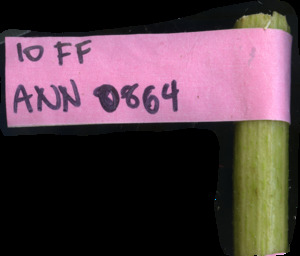 10 FF
ANN 0864